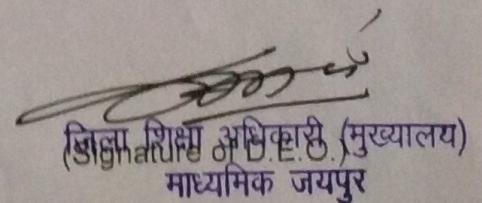 जिला शिक्षा अधिकारी (मुख्यालय)
(Signature of D.E.O.)
माध्यमिक जयपुर